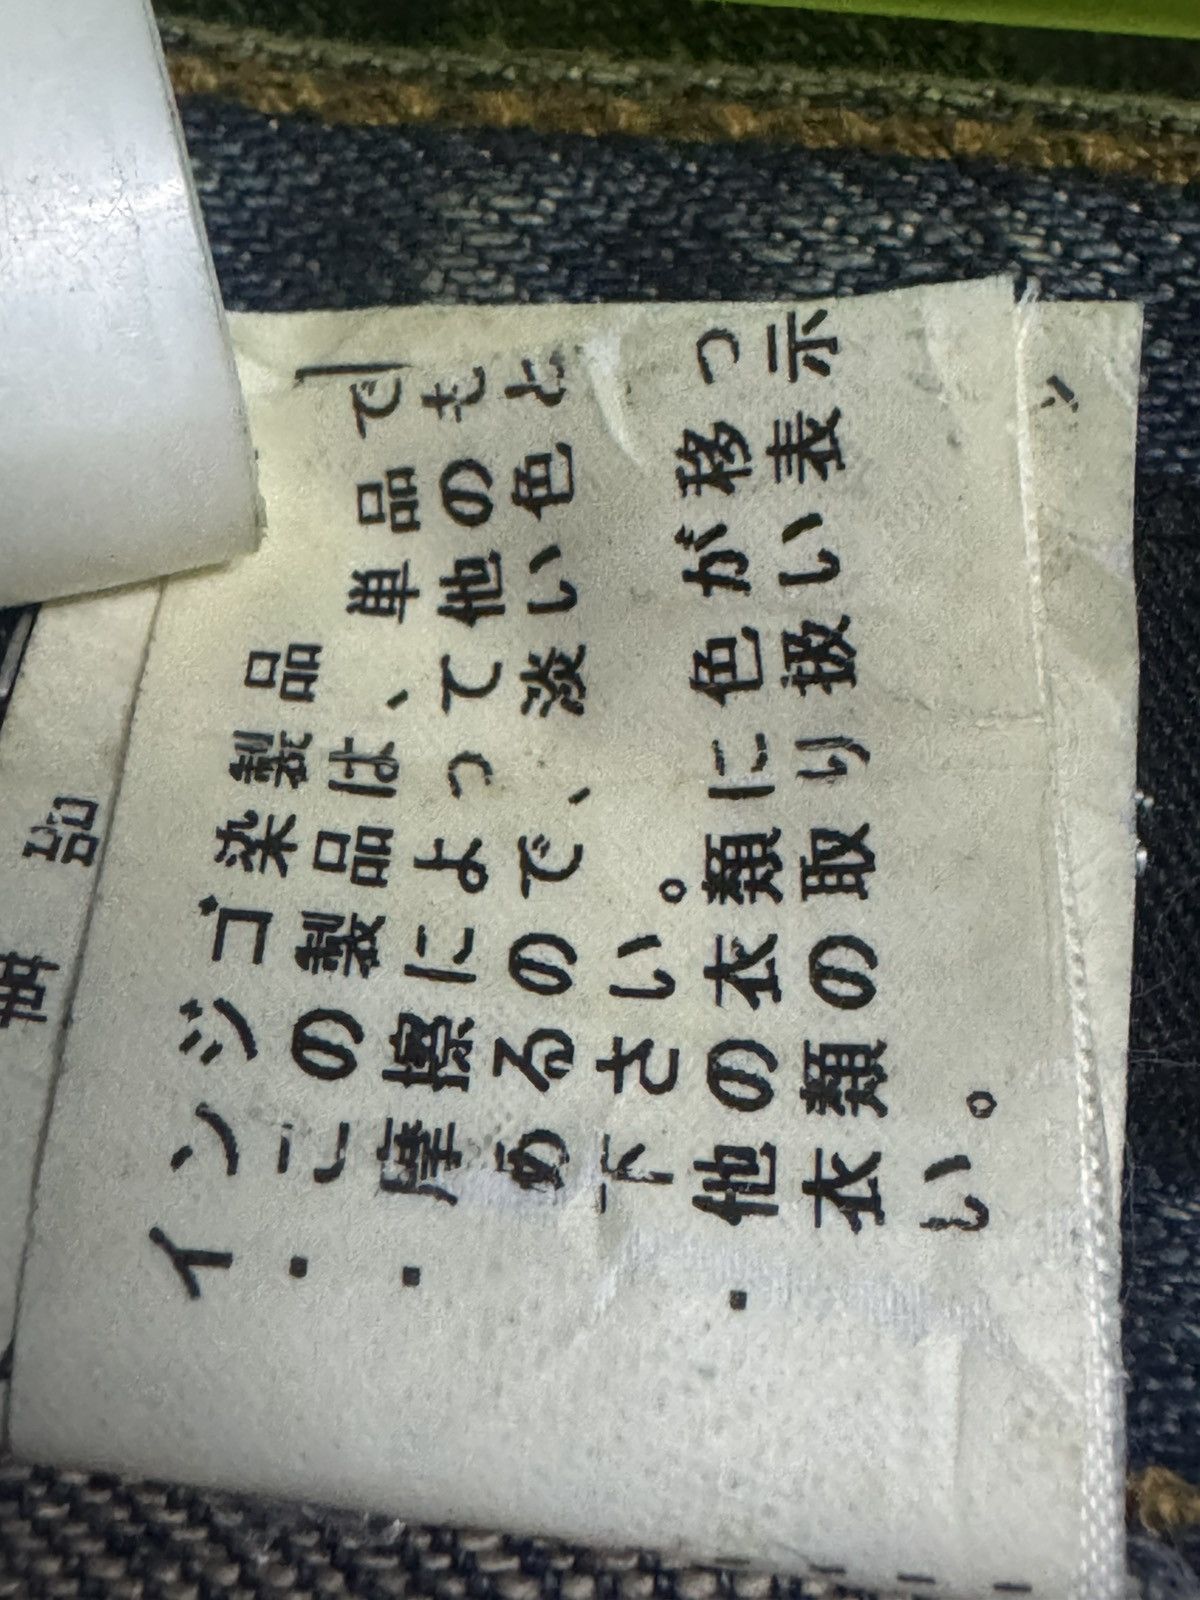 品
インジゴ染製品
・この製品は、単品で
・摩擦によって他のも
めるので、淡い色と
下さい。
・他の衣類に色が移っ
衣類の取り扱い表示
い。